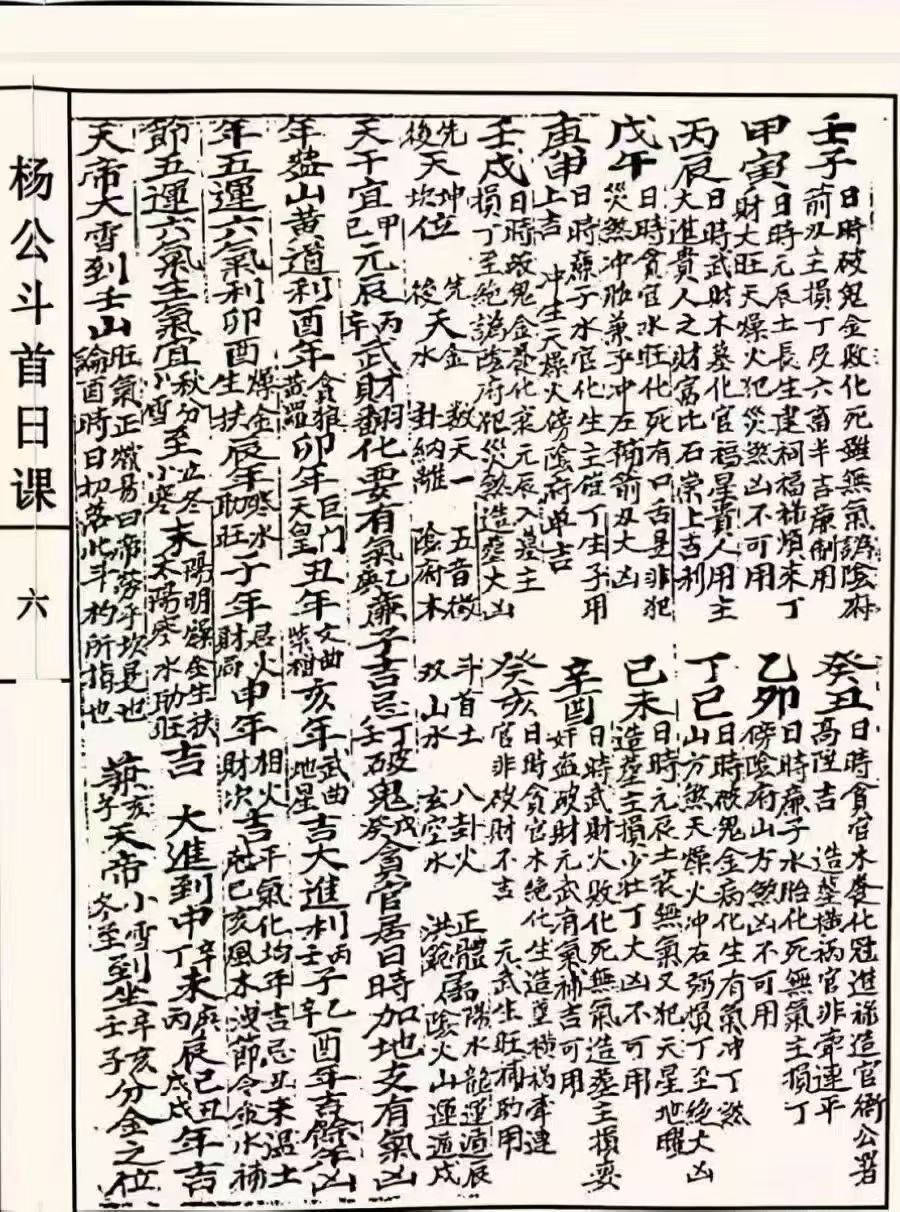 壬子日時破鬼金敗化死雖無氣謗陰府
箭刃主損丁及六畜半吉廉制用
癸丑日時貪官木養化冠進祿造官衙公署
高陞吉 造塋橫祸官非牽連平
甲寅日時元辰土長生建祠福祿煩來丁
財大旺天燥火犯災煞凶不可用
乙卯日時廉子水胎化死無氣主損丁
傍陰府山方煞凶不可用
丙辰日時武財木墓化官福星貴人用主
大進貴人之財富比石崇上吉利
丁巳日時破鬼金病化生有氣冲丁煞
山方煞天燥火冲右弼損丁至絕大凶
戊午日時貪官水旺化死有口舌是非犯
災煞冲胎兼乎冲左輔箭刃大凶
己未日時元辰土衰無氣又犯天星地曜
造塋主損少壯丁大凶不可用
庚申日時廉子水官化生主産丁生子用
上吉 冲生天燥火傍陰府半吉
辛酉日時武財火敗化死無氣造塋主損妻
奸盗破財元武消氣補吉可用
壬戌日時破鬼金養化衰元辰入墓主
損丁至絕謗陰府犯災煞造塋大凶
癸亥日時貪官木絕化生造塋橫祸牽連
官非破財不吉 元武生旺補助用
先天坤位 先天金 数天一 五音徵 斗首土 八卦火 正體屬陽水龍運遁辰
後天坎位 後天水 卦納離 陰府木 双山水 玄空水 洪範屬陰火山運遁戍
天干宜甲己元辰丙辛武財羽化要有氣乙庚廉子吉忌丁壬破鬼戊癸貪官居日時加地支有氣凶
年盤山黄道利酉年貪狼蓝羅卯年巨门天皇丑年文曲紫檀亥年武曲地星吉大進利丙壬子乙辛酉年吉餘年凶
年五運六氣利卯酉燥金生扶辰年寒水助旺子年君火財局申年相火財次吉平氣化均年吉忌丑未濕土尅巳亥風木洩節令金水補
節五運六氣主氣宜秋分小雪至立冬小寒末陽明燥金生扶太陽寒水助旺吉 大進到申辛丁未丙辰戊巳丑戌年吉
天帝大雪到壬山旺氣正嶽易曰帝勞乎坎是也論酉時日初落此斗杓所指也 葬亥子天帝小雪冬至到坐辛亥壬子分金之位
杨公斗首日课
六